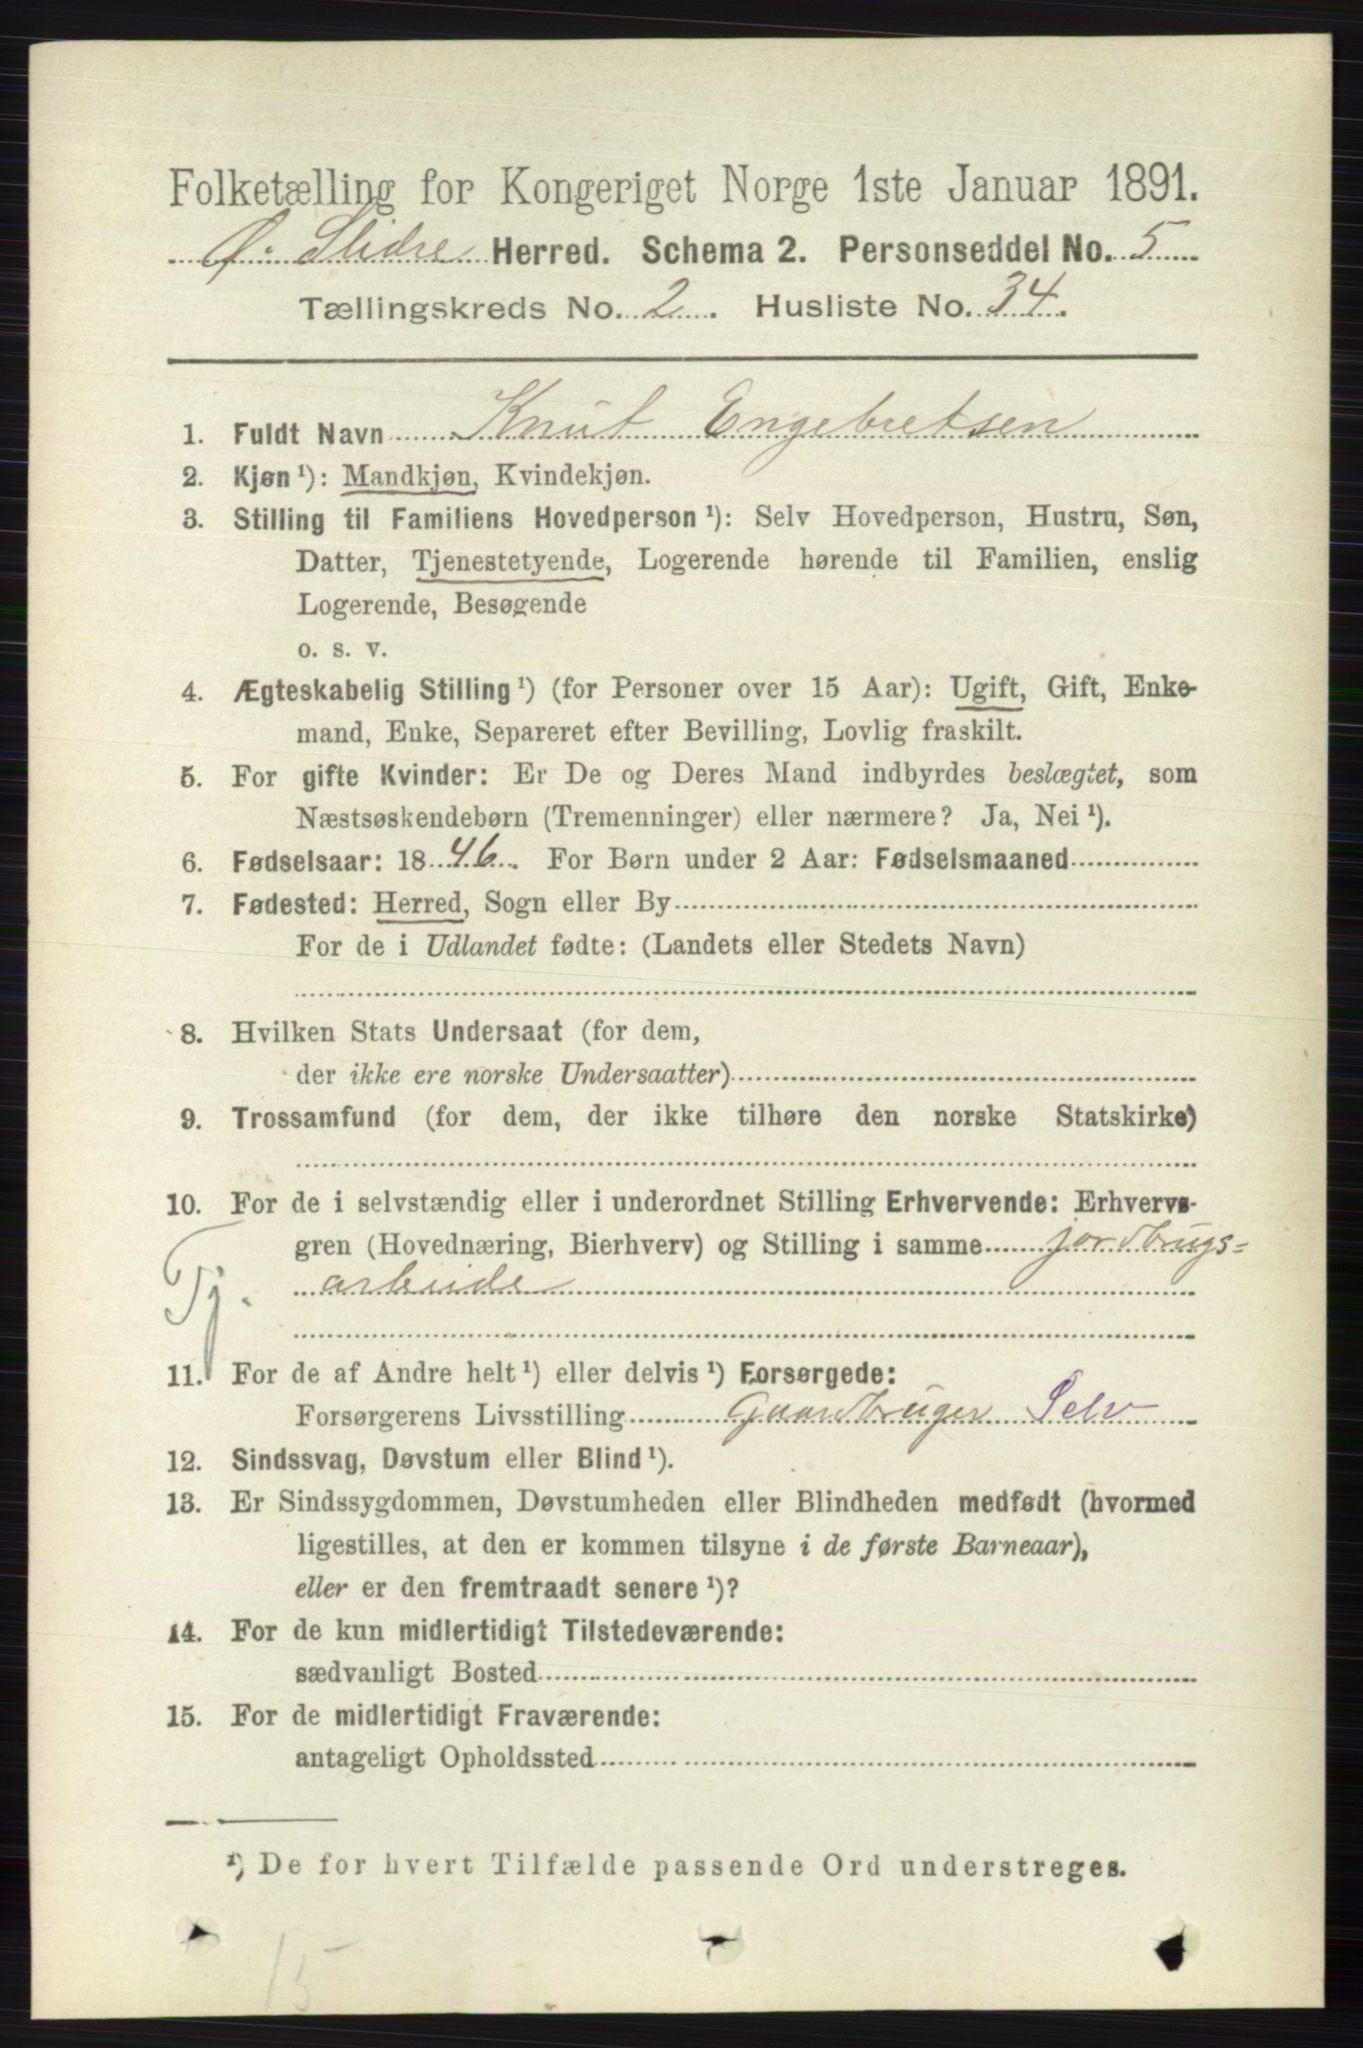 Folketælling for Kongeriget Norge 1ste Januar 1891.
Ø. Slidre Herred. Schema 2. Personseddel No. 5
Tællingskreds No. 2. Husliste No. 34.
1. Fuldt Navn Knut Engebretsen
2. Kjøn ¹): Mandkjøn, Kvindekjøn.
3. Stilling til Familiens Hovedperson ¹): Selv Hovedperson, Hustru, Søn,
Datter, Tjenestetyende, Logerende hørende til Familien, enslig
Logerende, Besøgende
o. s. v.
4. Ægteskabelig Stilling ¹) (for Personer over 15 Aar): Ugift, Gift, Enke-
mand, Enke, Separeret efter Bevilling, Lovlig fraskilt.
5. For gifte Kvinder: Er De og Deres Mand indbyrdes beslægtet, som
Næstsøskendebørn (Tremenninger) eller nærmere? Ja, Nei ¹).
6. Fødselsaar: 1846. For Børn under 2 Aar: Fødselsmaaned
7. Fødested: Herred, Sogn eller By
For de i Udlandet fødte: (Landets eller Stedets Navn)
8. Hvilken Stats Undersaat (for dem,
der ikke ere norske Undersaatter)
9. Trossamfund (for dem, der ikke tilhøre den norske Statskirke)
10. For de i selvstændig eller i underordnet Stilling Erhvervende: Erhvervs-
gren (Hovednæring, Bierhverv) og Stilling i samme jordbrugs=
Tj. arbeide
11. For de af Andre helt ¹) eller delvis ¹) Forsørgede:
Forsørgerens Livsstilling Gaardbruger Selv
12. Sindssvag, Døvstum eller Blind ¹).
13. Er Sindssygdommen, Døvstumheden eller Blindheden medfødt (hvormed
ligestilles, at den er kommen tilsyne i de første Barneaar),
eller er den fremtraadt senere ¹)?
14. For de kun midlertidigt Tilstedeværende:
sædvanligt Bosted
15. For de midlertidigt Fraværende:
antageligt Opholdssted
¹) De for hvert Tilfælde passende Ord understreges.
15